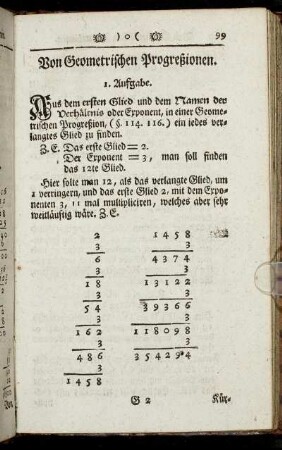 )o( 99
Von Geometrischen Progreßionen.
1. Aufgabe.
Aus dem ersten Glied und dem Namen des
Verhältnis oder Exponent, in einer Geome-
trischen Progreßion, (§. 114. 116.) ein iedes ver-
langtes Glied zu finden.
Z. E. Das erste Glied = 2.
Der Exponent = 3, man soll finden
das 12te Glied.
Hier solte man 12, als das verlangte Glied, um
1 verringern, und das erste Glied 2. mit dem Expo-
nenten 3, 11 mal multipliciren, welches aber sehr
weitläufig wäre. Z. E.
2
3
6
3
18
3
54
3
162
3
486
3
1458
1458
3
4374
3
13122
3
39366
3
118098
3
354294
G 2 Kür-